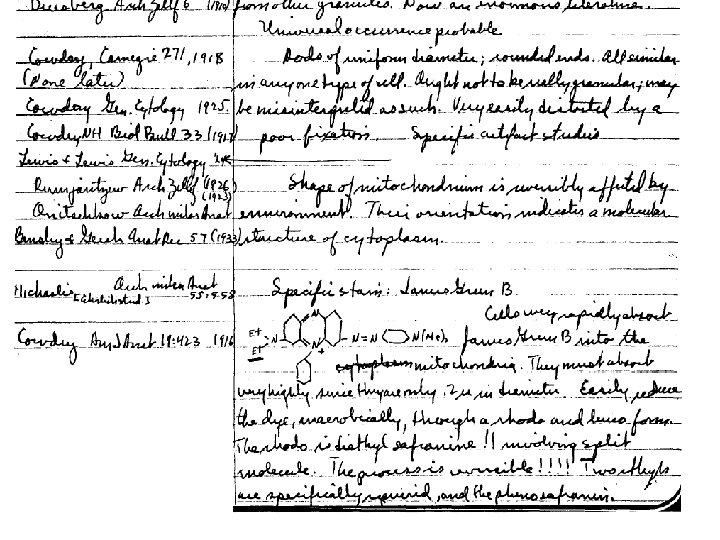 Arch Zellf 6 (1910) from other granules. Now an enormous literature.
Universal occurrence probable
Cowdry, Carnegie 271, 1918 Rods of uniform diameter; rounded ends. All similar
(None later) in any one type of cell. Ought not to be really granular; may
Cowdry Gen. Cytology 1925. be misinterpreted as such. Very easily distorted by a
Cowdry NH Biol Bull 33 (1917) poor fixation Specific artifact studies
Lewis & Lewis Gen. Cytology
Arch Zellf (1926) Shape of mitochondrium is reversibly affected by
(1923)
Arch mikro Anat environment. Their orientation indicates a molecular
Bensley & Gersh Anat Rec 57 (1933) structure of cytoplasm.
Michaelis Arch mikro Anat 55:558 Specific stain: Janus Green B.
Cells very rapidly absorb
Cowdry Am J Anat 19:423 1916 Et Et N N N N=N N(Me)2 Janus Green B into the
cytoplasm mitochondria. They must absorb
very highly since they are only .2µ in diameter. Easily reduce
the dye, anaerobically, through a rhodo and leuco form.
The rhodo is diethyl safranine !! involving split
molecule. The process is reversible!!!! Two ethyls
are specifically required, and the phenosafranin.